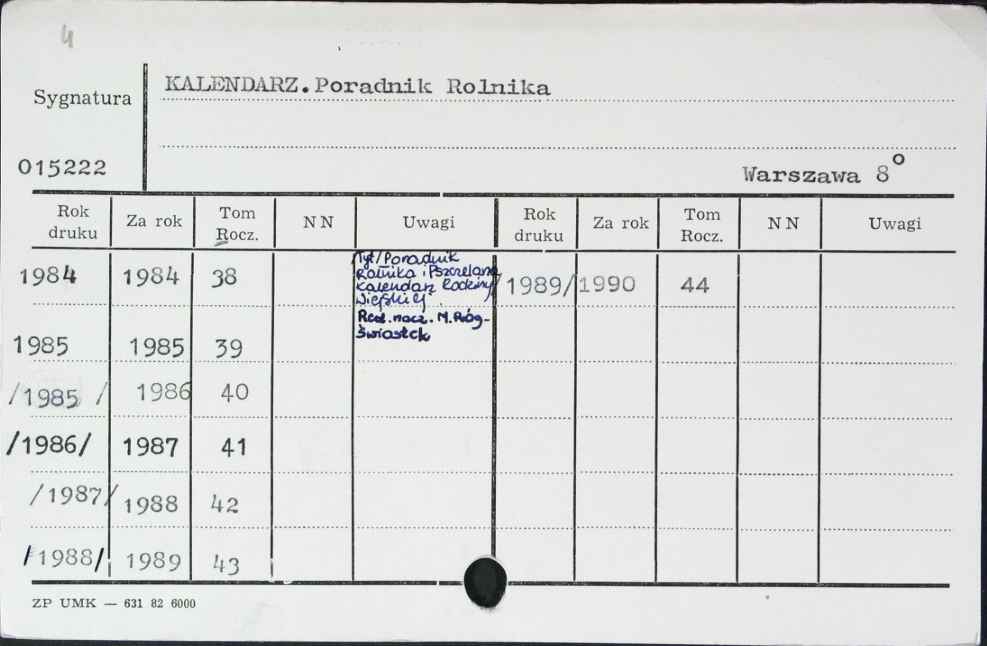 4
KALENDARZ. Poradnik Rolnika
Sygnatura
015222
Warszawa 8°
Rok druku Za rok Tom Rocz. NN Uwagi Rok druku Za rok Tom Rocz. NN Uwagi
1984 1984 38 Tyt/Poradnik
Rolnika i Pszczelarza
Kalendarz Rodziny
Wiejskiej.
Red. nacz. M. Róg-
Świostek
/1989/ 1990 44
1985 1985 39
/1985/ 1986 40
/1986/ 1987 41
/1987/ 1988 42
/1988/ 1989 43
ZP UMK — 631 82 6000